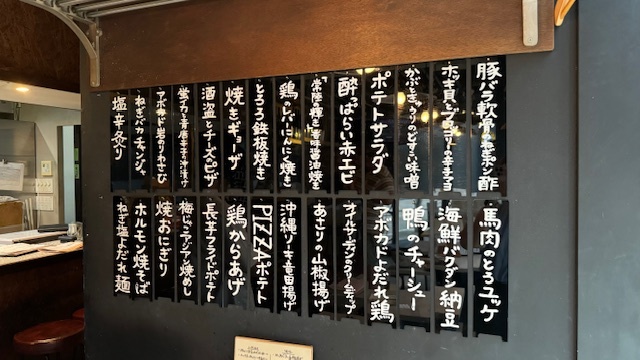 豚バラ軟骨のねぎポン酢
ホッキ貝とブロッコリーの辛子マヨ
かぶときゅうりのとすい味噌
ポテトサラダ
酔っぱらい赤エビ
鶏のレバにんにく焼き
とろろ鉄板焼き
焼きギョーザ
酒盗とチーズピザ
蛍力と青唐辛子の沖漬け
アボカドと岩のりわさび
ねぎバカチャンジャ
塩辛炙り
馬肉のとろユッケ
海鮮バクダン納豆
鴨のチャーシュー
アボカドよだれ鶏
オイルサーディンのクリームチーズ
あさりの山椒揚げ
沖縄ソーキ竜田揚げ
PIZZAポテト
鶏からあげ
長芋フライドポテト
焼おにぎり
ホルモン焼そば
ねぎ塩よだれ麺